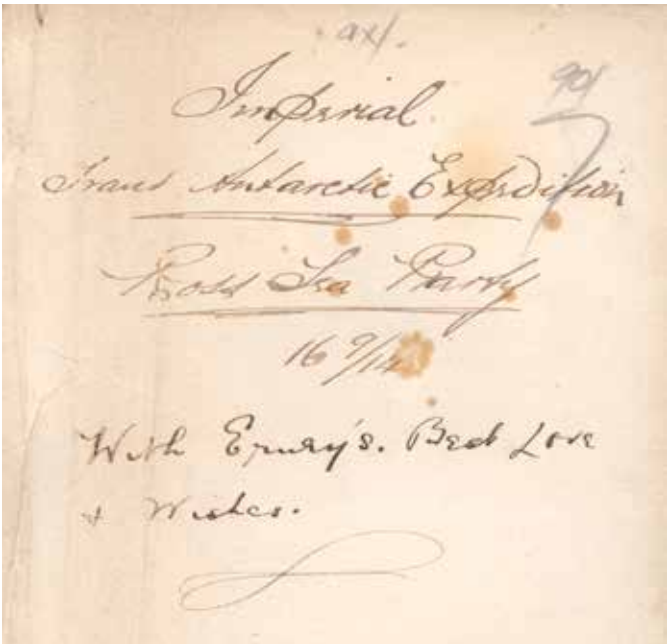 Imperial
Trans Antarctic Expedition
Ross Sea Party
16 9/14
With Erney's. Best Love
+ Wishes.